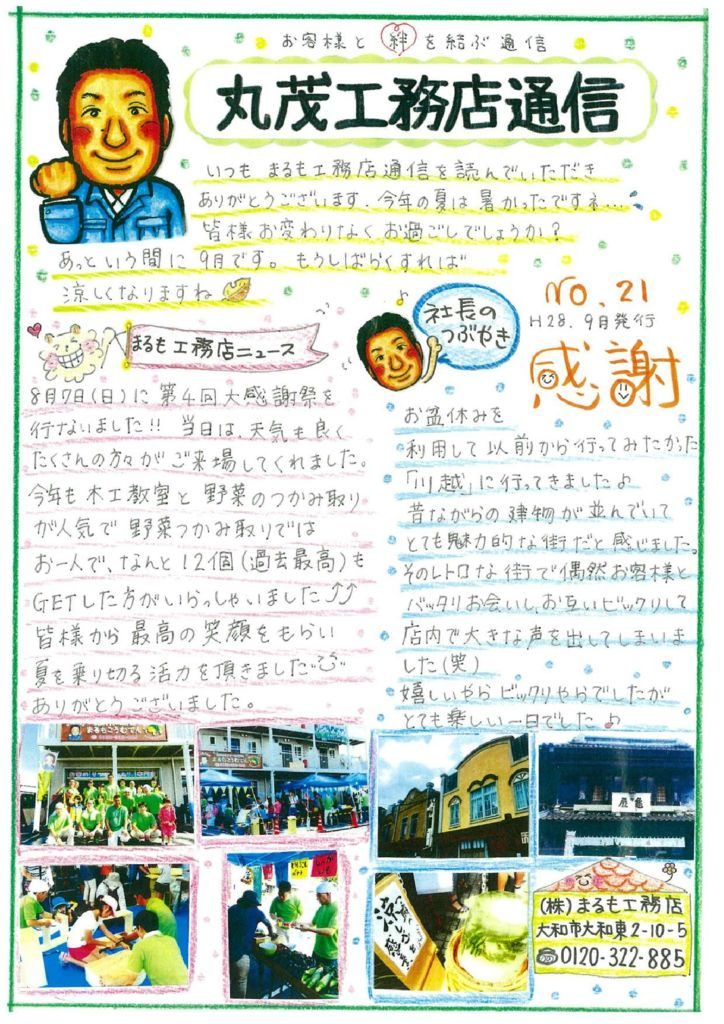 お客様と絆を結ぶ通信
丸茂工務店通信
いつも まるも工務店通信を読んでいただき
ありがとうございます。今年の夏は暑かったですネ…
皆様お変わりなくお過ごしでしょうか?
あっという間に9月です。もうしばらくすれば
涼しくなりますね
NO.21
H28.9月発行
感謝
まるも工務店ニュース
8月7日(日)に第4回大感謝祭を
行ないました!! 当日は、天気も良く
たくさんの方々がご来場してくれました。
今年も木工教室と野菜のつかみ取り
が人気で野菜つかみ取りでは
お一人で、なんと12個(過去最高)も
GETした方がいらっしゃいました⤴⤴
皆様から最高の笑顔をもらい
夏を乗り切る活力を頂きました
ありがとうございました。
社長の
つぶやき
お盆休みを
利用して以前から行ってみたかった
「川越」に行ってきましたよ
昔ながらの建物が並んでいて
とても魅力的な街だと感じました。
そのレトロな街で偶然お客様と
バッタリお会いし、お互いビックリして
店内で大きな声を出してしまいま
した(笑)
嬉しいやらビックリやらでしたが
とても楽しい一日でした♪
まるもこうむてん
まるもこうむてん
(株)まるも工務店
大和市大和東2-10-5
☎0120-322-885